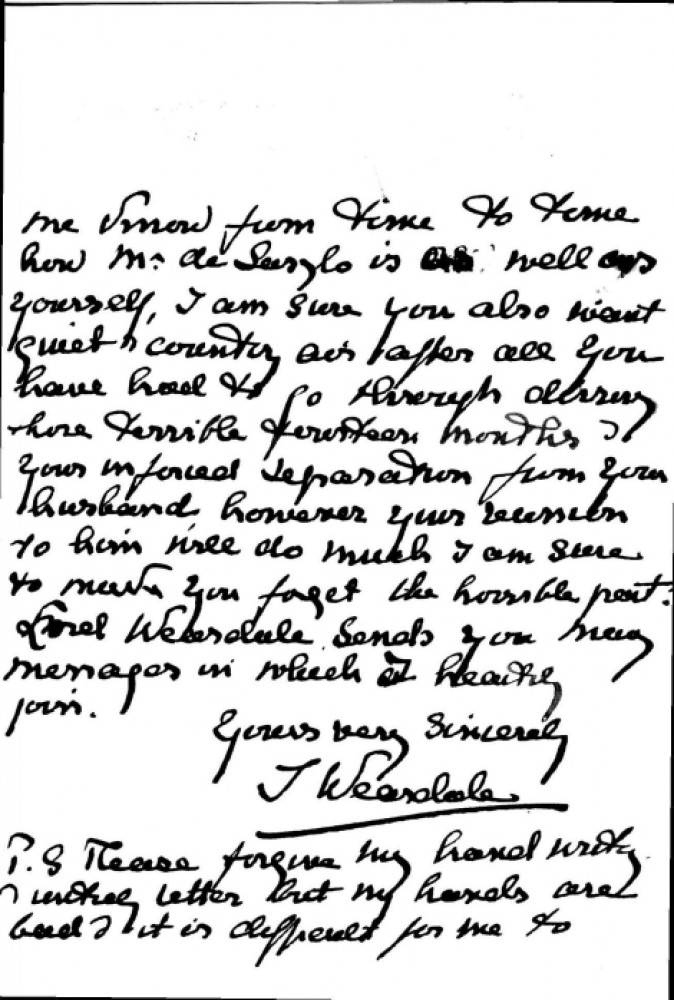 me know from time to time
how Mr de Laszlo is as well as
yourself, I am sure you also want
quiet & country air after all you
have had to go through during
these terrible fourteen months &
your inforced separation from your
husband however your reunion
to him will do much I am sure
to make you forget the horrible past.
Lord Weardale sends you many
messages in which I heartily
join.
Yours very sincerely
J Weardale
P.S Please forgive my hand writing
& untidy letter but my hands are
bad & it is difficult for me to